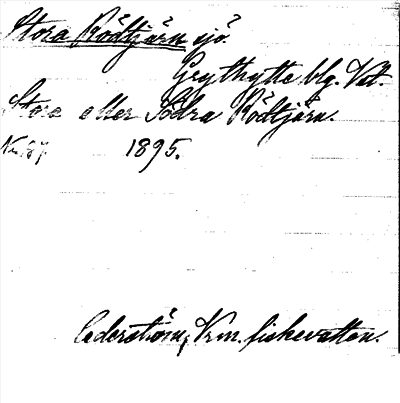 Stora Rödtjärn sjö.
Grythytte blg. Vstl.
Stora eller Södra Rödtjärn.
1895.
Cederström, Vrm. fiskevatten.